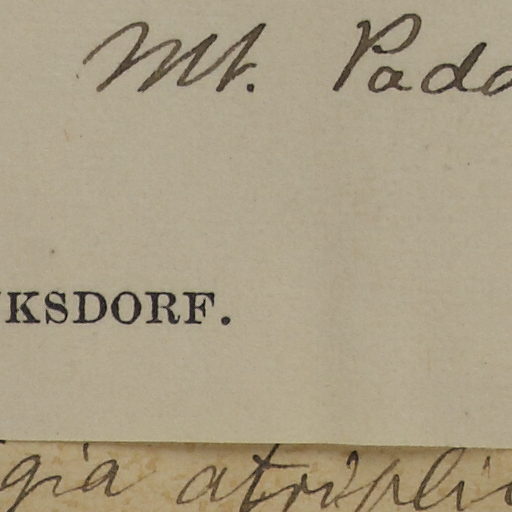 Mt. Padd
KSDORF.
gia atripli